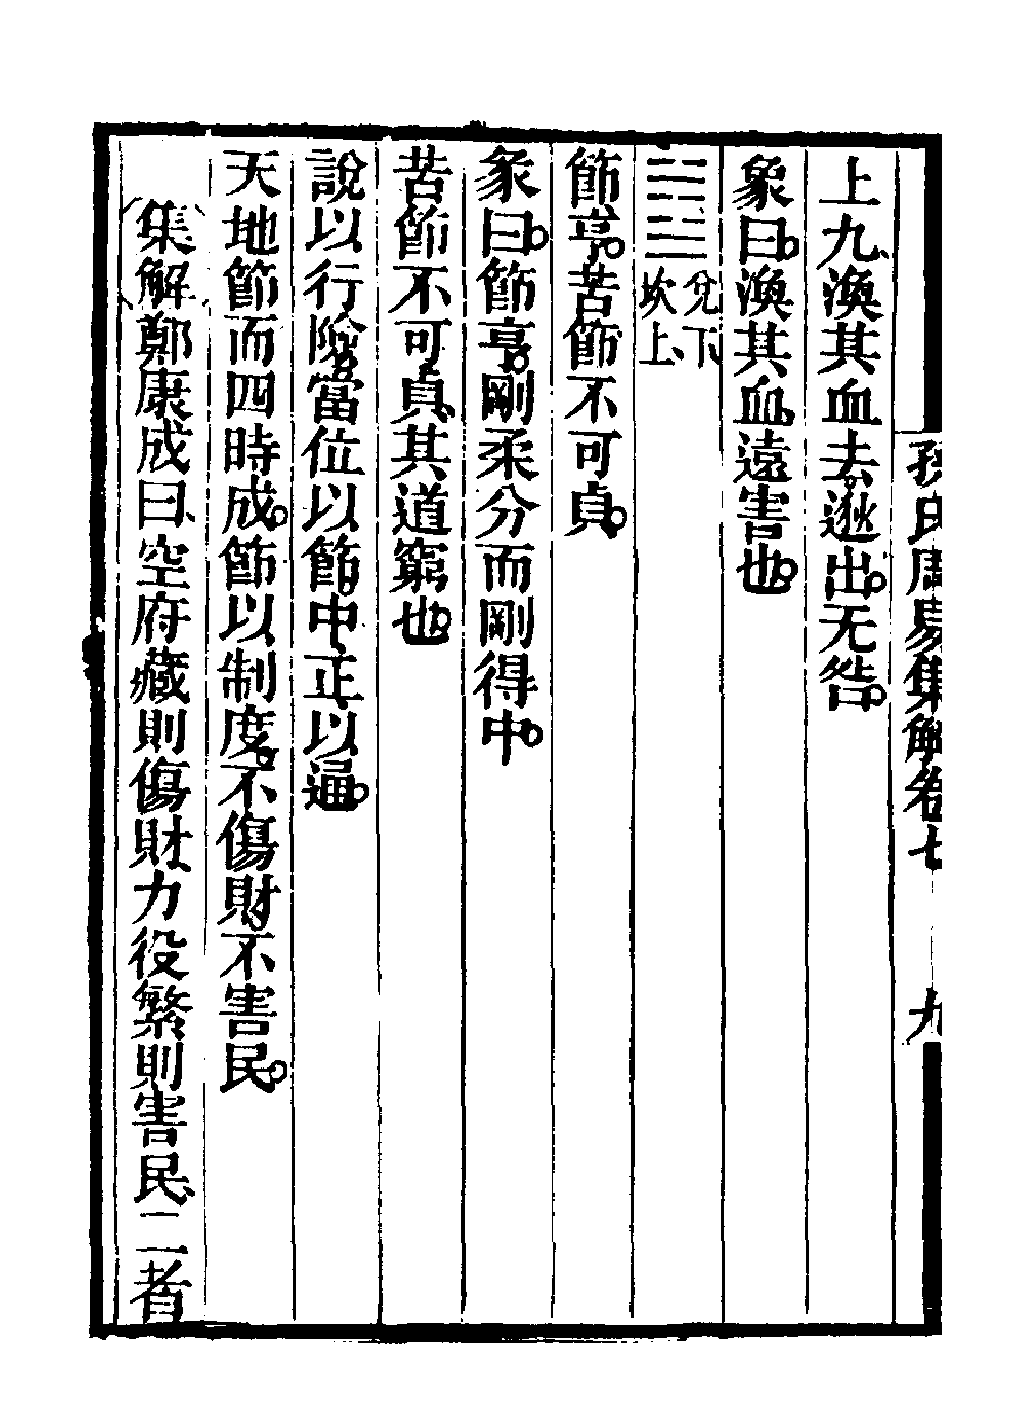 孫氏周易集解卷七 九
上九、渙其血去逖出。无咎。
象曰。渙其血。遠害也。
兌下
坎上
節亨。苦節不可貞。
彖曰。節亨。剛柔分而剛得中。
苦節不可貞、其道窮也。
說以行險。當位以節。中正以通。
天地節而四時成。節以制度。不傷財不害民。
集解鄭康成曰、空府藏則傷財力役繁則害民、二者